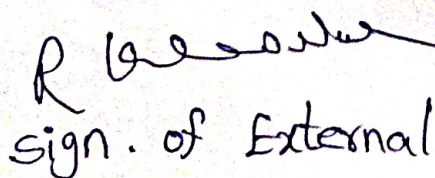 R
sign. of External